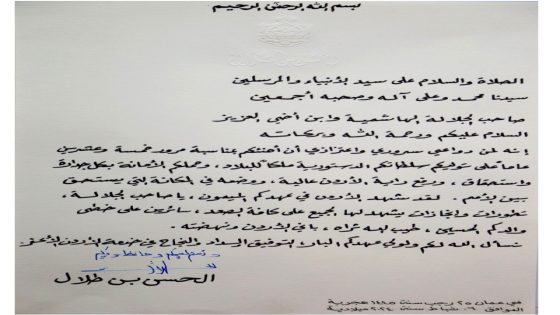 بسم الله الرحمن الرحيم
الصلاة والسلام على سيد الأنبياء والمرسلين
سيدنا محمد وعلى آله وصحبه أجمعين
صاحب الجلالة الهاشمية وابن أخي العزيز
السلام عليكم ورحمة الله وبركاته
إنه لمن دواعي سروري واعتزازي أن أهنئكم بمناسبة مرور خمسة وعشرين
عاماً على توليكم سلطاتكم الدستورية ملكاً للبلاد، وحملكم الأمانة بكل جدارة
واستحقاق، ورفع راية الأردن عالية، ووضعه في المكانة التي يستحق
بين الأمم. لقد شهد الأردن في عهدكم الميمون، يا صاحب الجلالة،
تطورات وإنجازات يشهد لها الجميع على كافة الصعد، سائرين على خطى
والدكم الحسين، طيب الله ثراه، باني الأردن ونهضته.
نسأل الله لكم ولولي عهدكم البار التوفيق السداد والنجاح في خدمة الأردن الأعز.
الحسن بن طلال
في عمان ٢٥ رجب سنة ١٤٤٥ هجرية
الموافق ٠٦ شباط سنة ٢٠٢٤ ميلادية